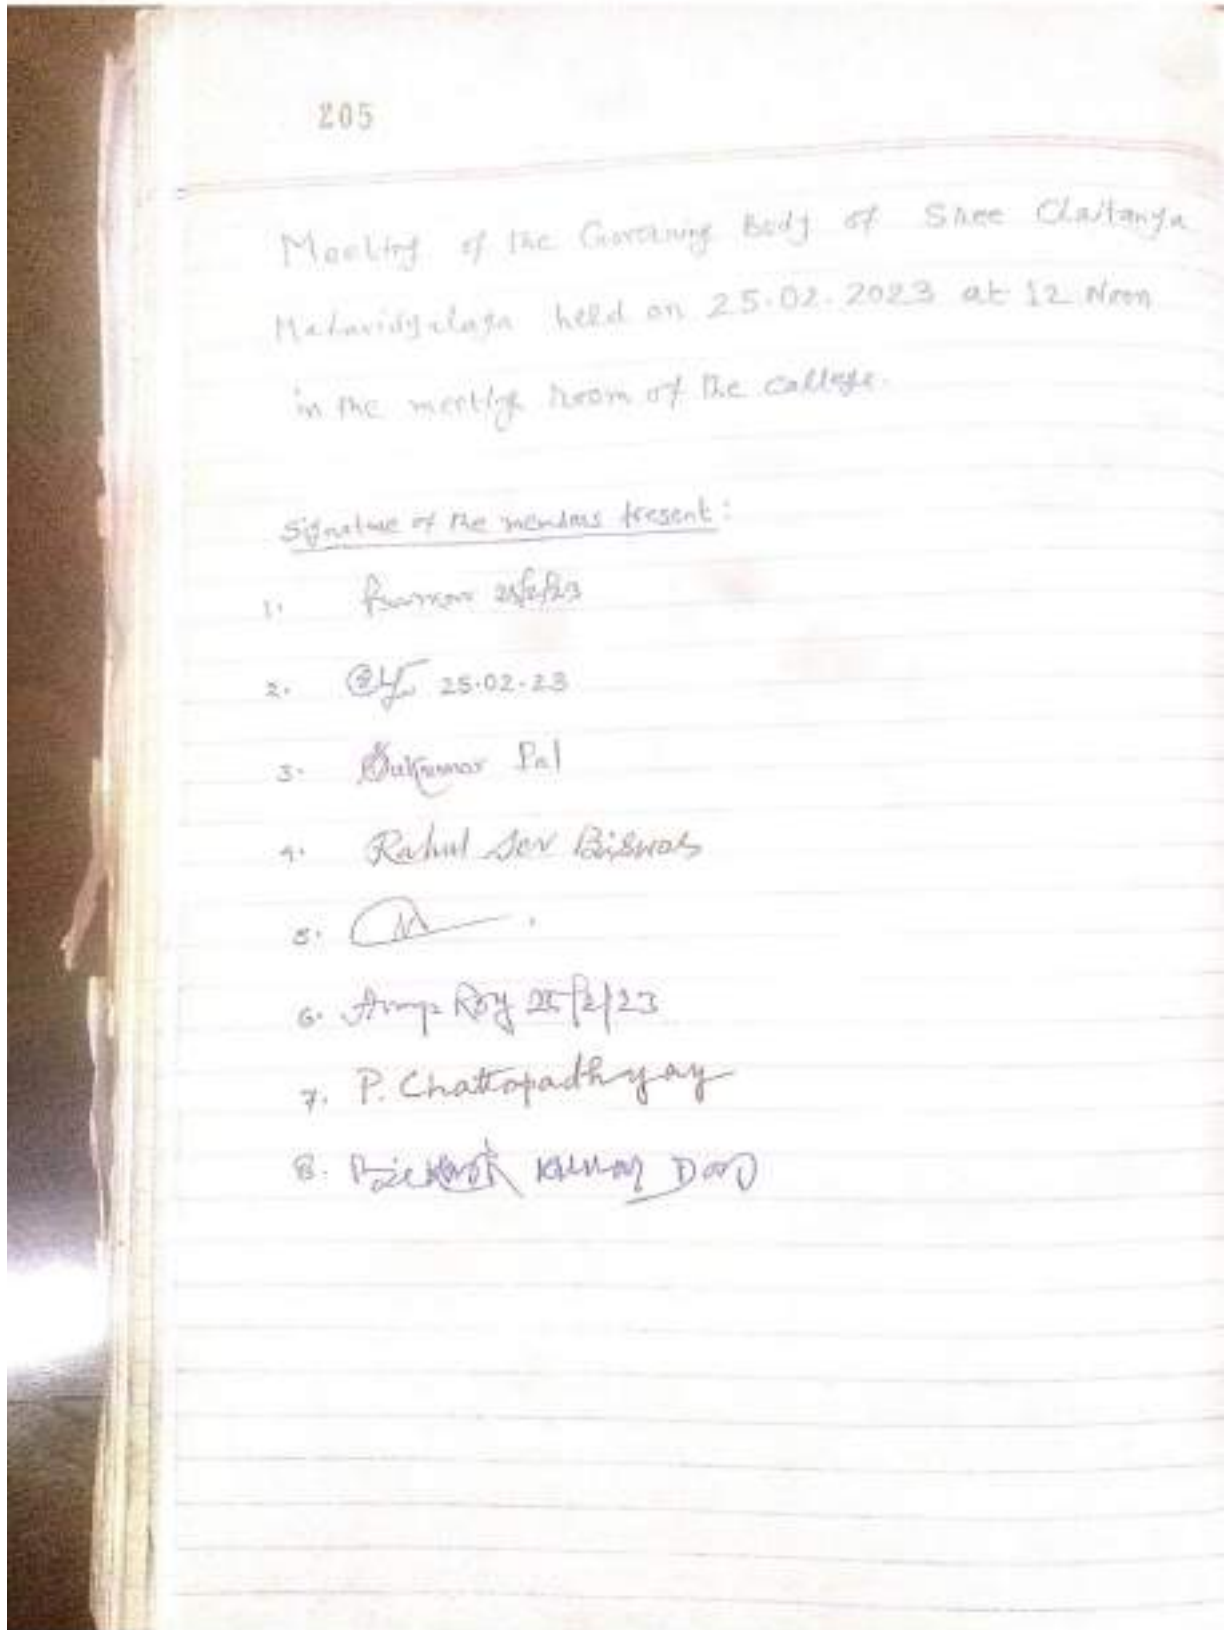 205
Meeting of the Governing Body of Shree Chaitanya
Mahavidyalaya held on 25.02.2023 at 12 Noon
in the meeting room of the college.
Signature of the members present:
1. 25/2/23
2. 25.02.23
3. Sukumar Pal
4. Rahul Dev Biswas
5.
6. Roy 25/2/23
7. P. Chattopadhyay
8. Kumar Das